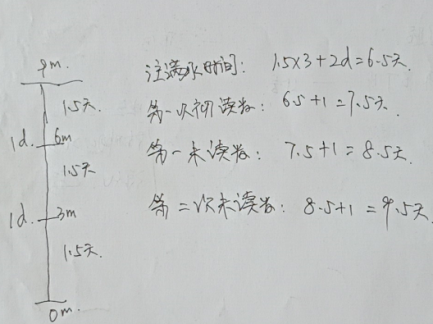 9m.
1.5天
1d. 6m
1.5天
1d. 3m
1.5天.
0m.
注满水时间: 1.5×3+2d=6.5天.
第一次初读数: 6.5+1=7.5天.
第一末读数: 7.5+1=8.5天.
第二次末读数: 8.5+1=9.5天.